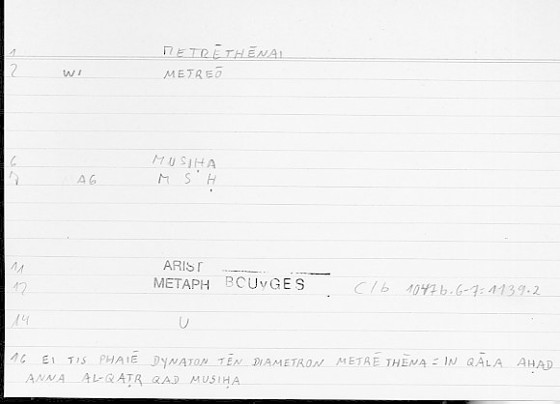 1 METRĒTHĒNAI
2 WI METREŌ
6 MUSIḤA
7 AG M S Ḥ
11 ARIST
12 METAPH BOUYGES C/b 1047b.6-7:1139.2
14 U
16 EI TIS PHAIĒ DYNATON TĒN DIAMETRON METRĒTHĒNA = IN QĀLA AḤAD
ANNA AL-QAṬR QAD MUSIḤA